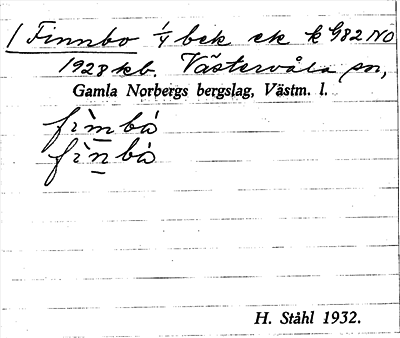 1 Finnbo 1/4 bek ek k G82 NO
1928 kb. Västervåla sn,
Gamla Norbergs bergslag, Västm. l.
fìm̲bå
fìn̲bå
H. Ståhl 1932.